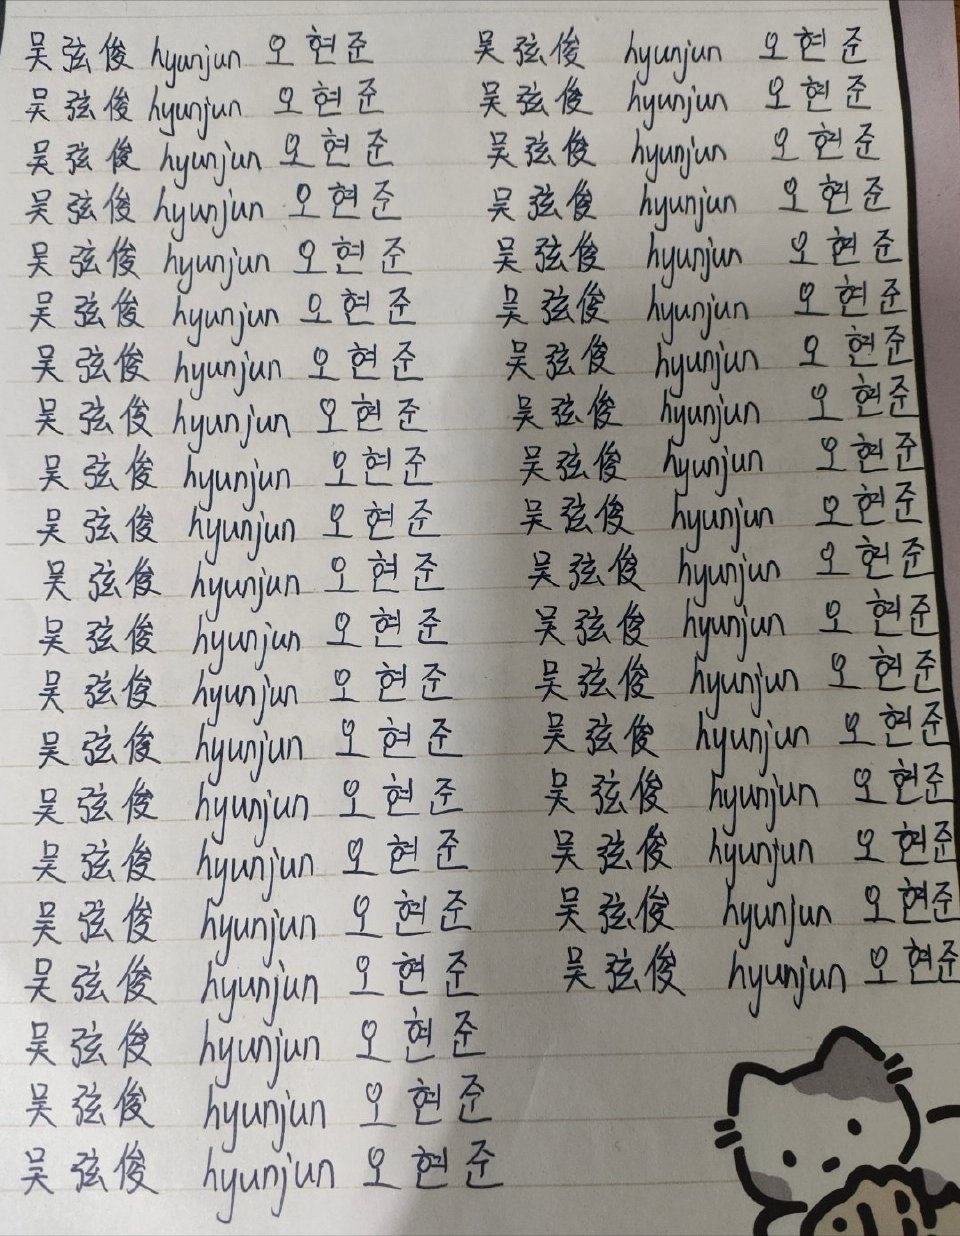 吴弦俊 hyunjun 오현준 吴弦俊 hyunjun 오현준
吴弦俊 hyunjun 오현준 吴弦俊 hyunjun 오현준
吴弦俊 hyunjun 오현준 吴弦俊 hyunjun 오현준
吴弦俊 hyunjun 오현준 吴弦俊 hyunjun 오현준
吴弦俊 hyunjun 오현준 吴弦俊 hyunjun 오현준
吴弦俊 hyunjun 오현준 吴弦俊 hyunjun 오현준
吴弦俊 hyunjun 오현준 吴弦俊 hyunjun 오현준
吴弦俊 hyunjun 오현준 吴弦俊 hyunjun 오현준
吴弦俊 hyunjun 오현준 吴弦俊 hyunjun 오현준
吴弦俊 hyunjun 오현준 吴弦俊 hyunjun 오현준
吴弦俊 hyunjun 오현준 吴弦俊 hyunjun 오현준
吴弦俊 hyunjun 오현준 吴弦俊 hyunjun 오현준
吴弦俊 hyunjun 오현준 吴弦俊 hyunjun 오현준
吴弦俊 hyunjun 오현준 吴弦俊 hyunjun 오현준
吴弦俊 hyunjun 오현준 吴弦俊 hyunjun 오현준
吴弦俊 hyunjun 오현준 吴弦俊 hyunjun 오현준
吴弦俊 hyunjun 오현준 吴弦俊 hyunjun 오현준
吴弦俊 hyunjun 오현준 吴弦俊 hyunjun 오현준
吴弦俊 hyunjun 오현준
吴弦俊 hyunjun 오현준
吴弦俊 hyunjun 오현준